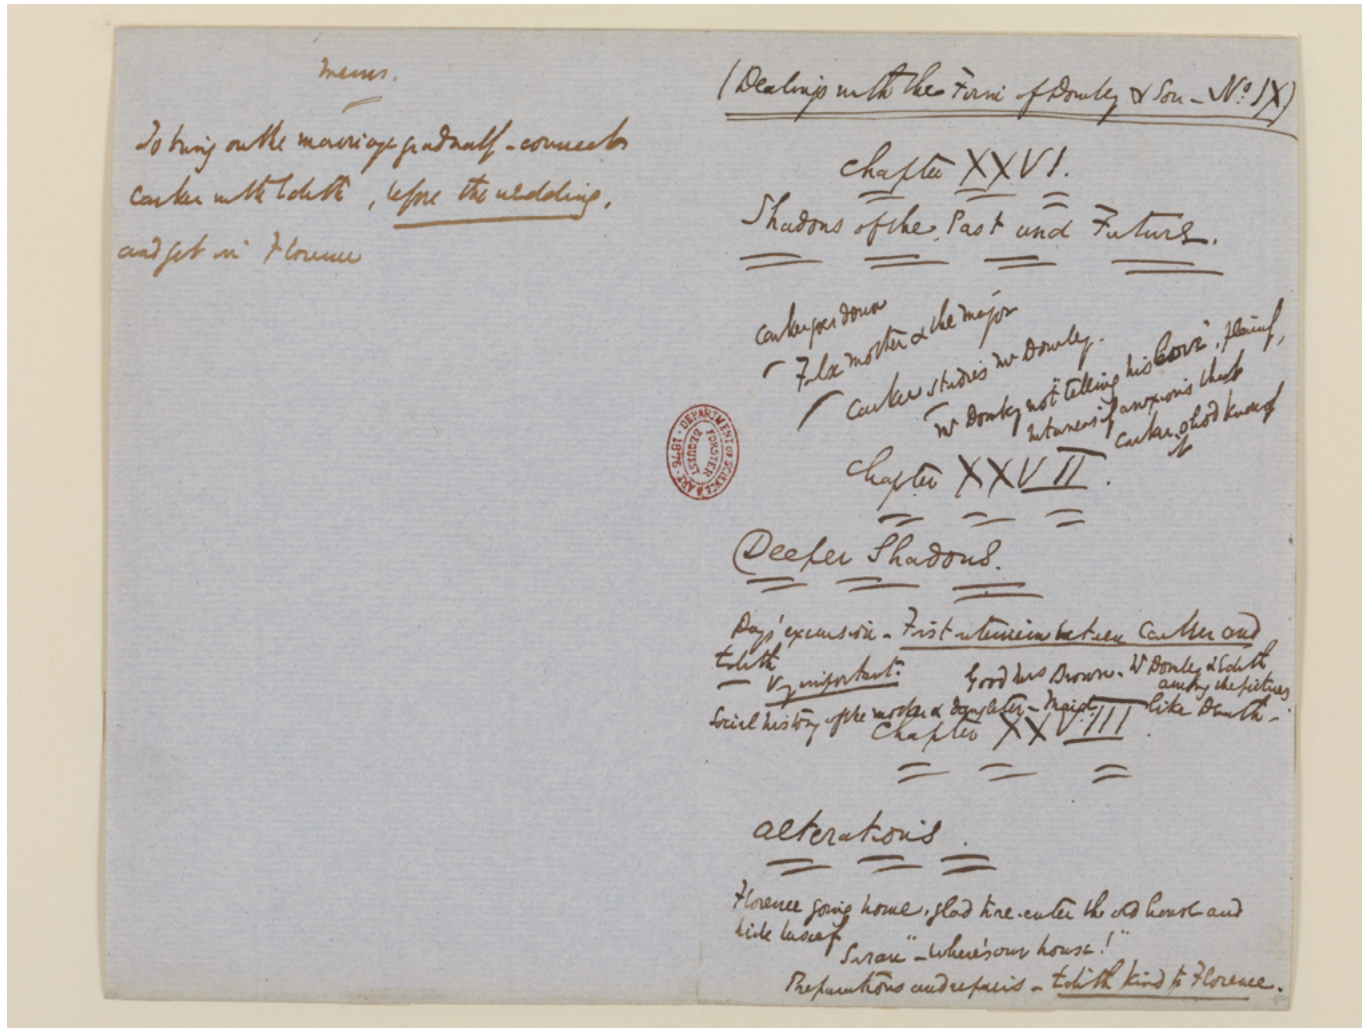 Mems.
To bring on the marriage gradually - connects
Carker with Edith, before the wedding,
and get in Florence
(Dealings with the Firm of Dombey & Son - No. IX)
Chapter XXVI.
Shadows of the Past and Future.
Carker goes down
False mother & the Major
Carker studies Mr Dombey.
Mr Dombey not "telling his love", placing,
nervous & anxious that
Carker shod know of
it
Chapter XXVII.
Deeper Shadows.
Days' excursion - First interview between Carker and
Edith
Very important.
Good Mrs Brown - Mr Dombey & Edith
among the pictures
Social history of the mother & daughter - Maid
like Death -
Chapter XXVIII
Alterations.
Florence going home, glad to re-enter the old house and
hide herself
Susan" - Where's our house!"
Preparations and repairs - Edith kind to Florence.
DEPARTMENT OF SCIENCE & ART · 1876 ·
FORSTER BEQUEST